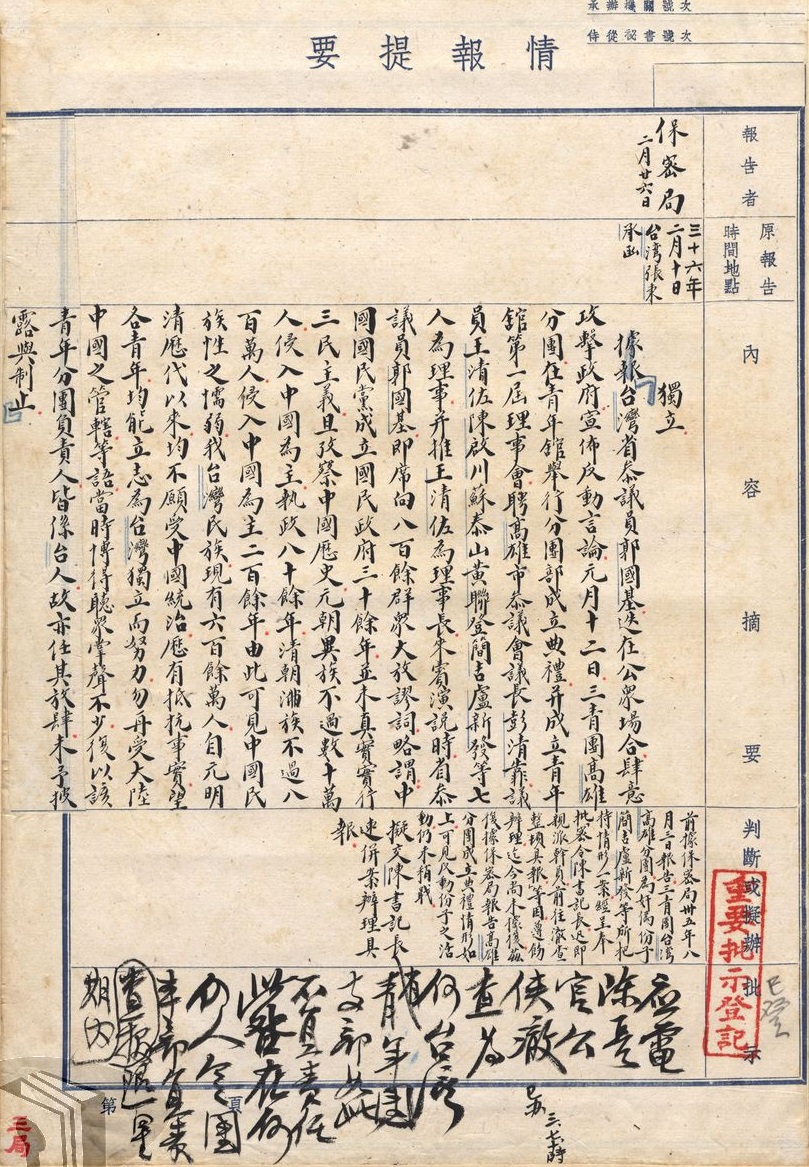 承辦機關號次
侍從祕書號次
情報提要
報告者
原報告
時間地點
內容摘要
判斷或擬辦
批示
保密局
二月廿六日
三十六年
二月十日
台灣張來
承函
獨立
據報台灣省參議員郭國基迭在公眾場合肆意
攻擊政府宣佈反動言論元月十二日三青團高雄
分團在青年館舉行分團部成立典禮并成立青年
館第一屆理事會聘高雄市參議會議長彭清靠議
員王清佐陳啟川蘇泰山黃聯登簡吉盧新發等七
人為理事并推王清佐為理事長來賓演說時省參
議員郭國基即席向八百餘群眾大放謬詞略謂中
國國民黨成立國民政府三十餘年並未真實實行
三民主義且攷察中國歷史元朝異族不過數十萬
人侵入中國為主執政八十餘年清朝滿族不過八
百萬人侵入中國為主二百餘年由此可見中國民
族性之懦弱我台灣民族現有六百餘萬人自元明
清歷代以來均不願受中國統治歷有抵抗事實望
各青年均能立志為台灣獨立而努力勿再受大陸
中國之管轄等語當時博得聽眾掌聲不少復以該
青年分團負責人皆係台人故亦任其放肆未予披
露與制止
前據保密局卅五年八
月三日報告三青團台灣
高雄分團為奸偽份子
簡吉盧新發等所把
持情形一案經呈奉
批忝令陳書記長迅即
親派幹員前往澈查
整頓具報等因遵飭
辦理迄今尚未據復茲
復據保密局報告高雄
分團成立典禮情形如
上可見反動份子之活
動仍未稍戢
擬交陳書記長
速併案辦理具
報
應電
陳長
官公
俠澈
查為
何台灣
省青年團
支部如此
不負責任
此咎在何
何人令團
本部負責
查報限一星
期內
三、七、時
重要批示登記
已登
第 頁
三局